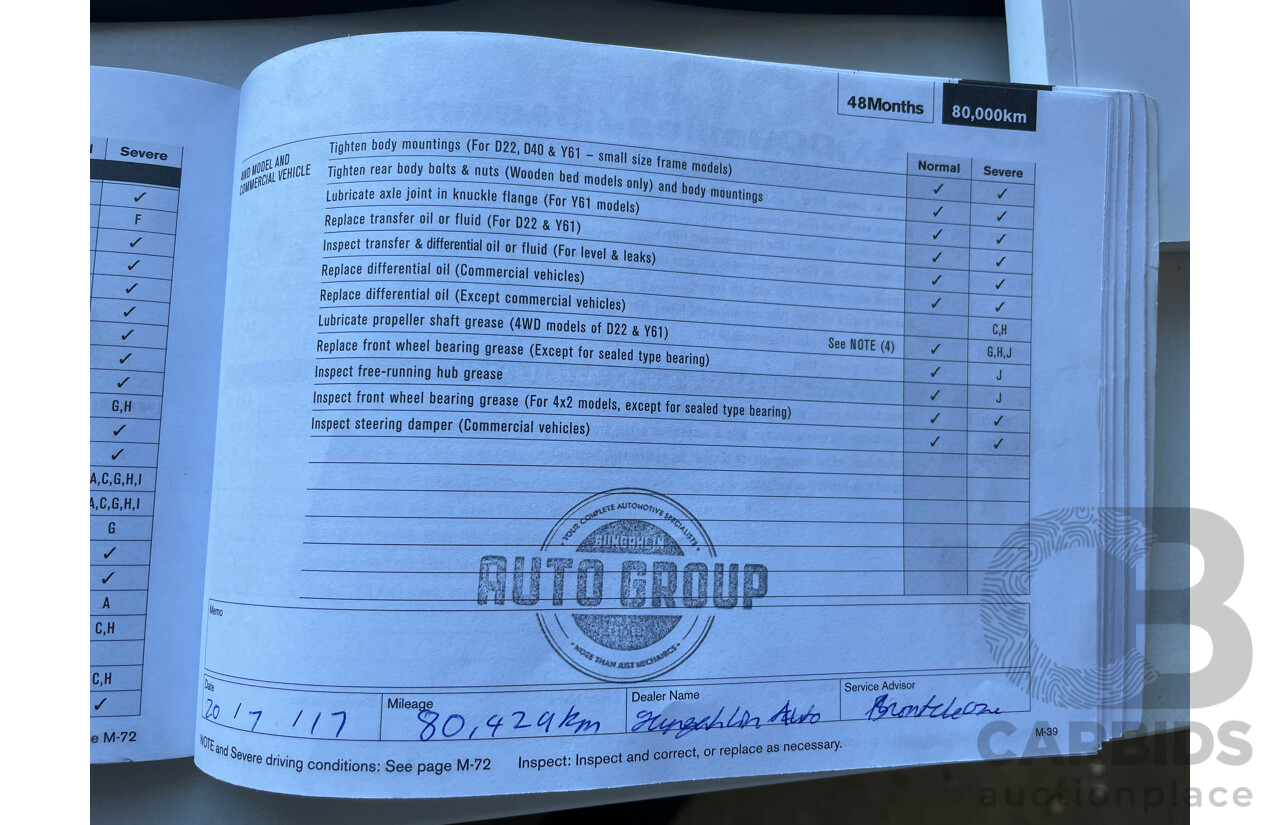 Severe
✓
F
✓
✓
✓
✓
✓
✓
✓
G,H
✓
✓
A,C,G,H,I
A,C,G,H,I
G
✓
✓
A
C,H
C,H
✓
e M-72
48Months 80,000km
4WD MODEL AND
COMMERCIAL VEHICLE
Normal Severe
Tighten body mountings (For D22, D40 & Y61 – small size frame models) ✓ ✓
Tighten rear body bolts & nuts (Wooden bed models only) and body mountings ✓ ✓
Lubricate axle joint in knuckle flange (For Y61 models) ✓ ✓
Replace transfer oil or fluid (For D22 & Y61) ✓ ✓
Inspect transfer & differential oil or fluid (For level & leaks) ✓ ✓
Replace differential oil (Commercial vehicles) ✓ ✓
Replace differential oil (Except commercial vehicles) C,H
Lubricate propeller shaft grease (4WD models of D22 & Y61) See NOTE (4) ✓ G,H,J
Replace front wheel bearing grease (Except for sealed type bearing) ✓ J
Inspect free-running hub grease ✓ J
Inspect front wheel bearing grease (For 4x2 models, except for sealed type bearing) ✓ ✓
Inspect steering damper (Commercial vehicles) ✓ ✓
• YOUR COMPLETE AUTOMOTIVE SPECIALISTS •
AUTO GROUP
• MORE THAN JUST MECHANICS •
Memo
Date Mileage Dealer Name Service Advisor
20 / 7 / 17 80,429km Gungahlin Auto
NOTE and Severe driving conditions: See page M-72 Inspect: Inspect and correct, or replace as necessary.
M-39
CB
CARBIDS
auctionplace